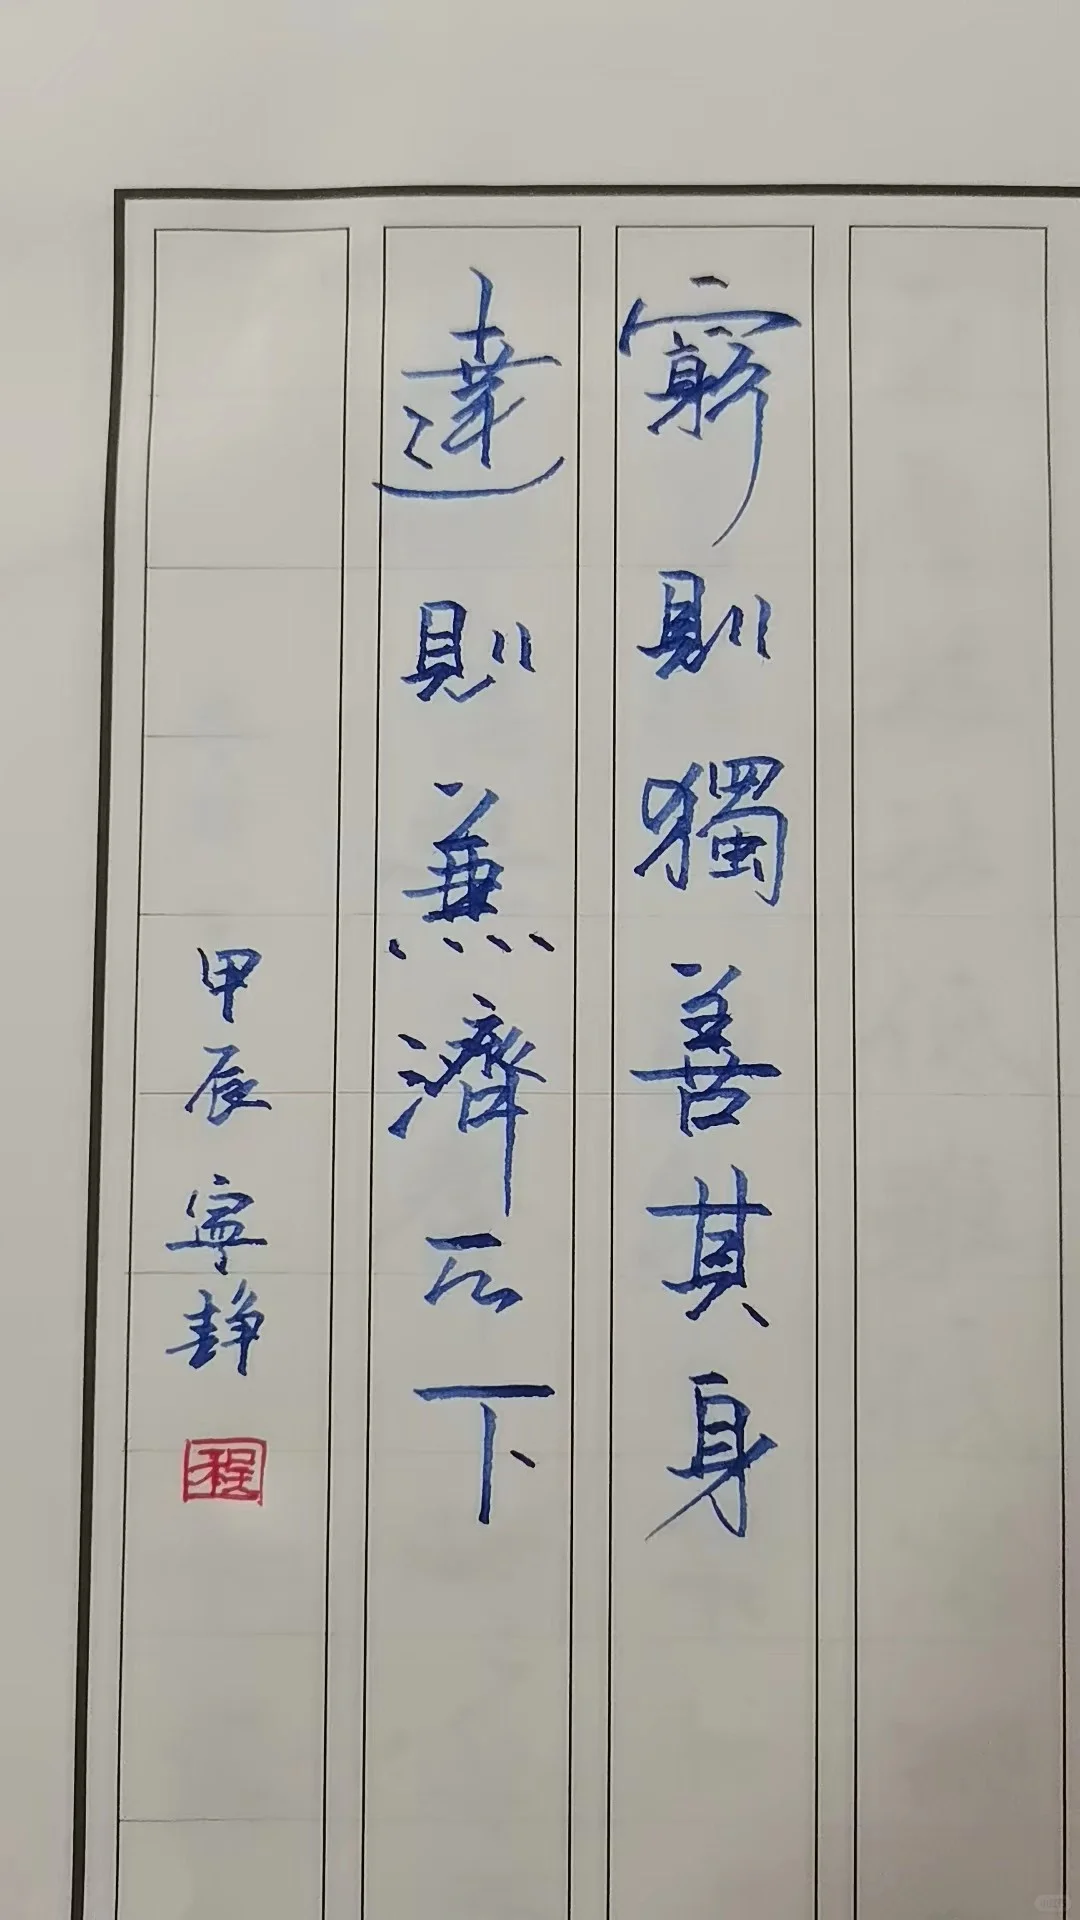 窮則獨善其身
達則兼濟天下
甲辰 寧靜
程